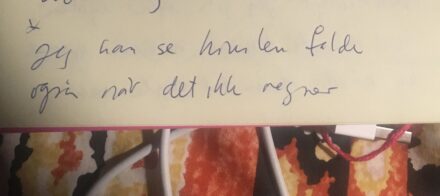 *
jeg kan se himlen falde
også når det ikk regner